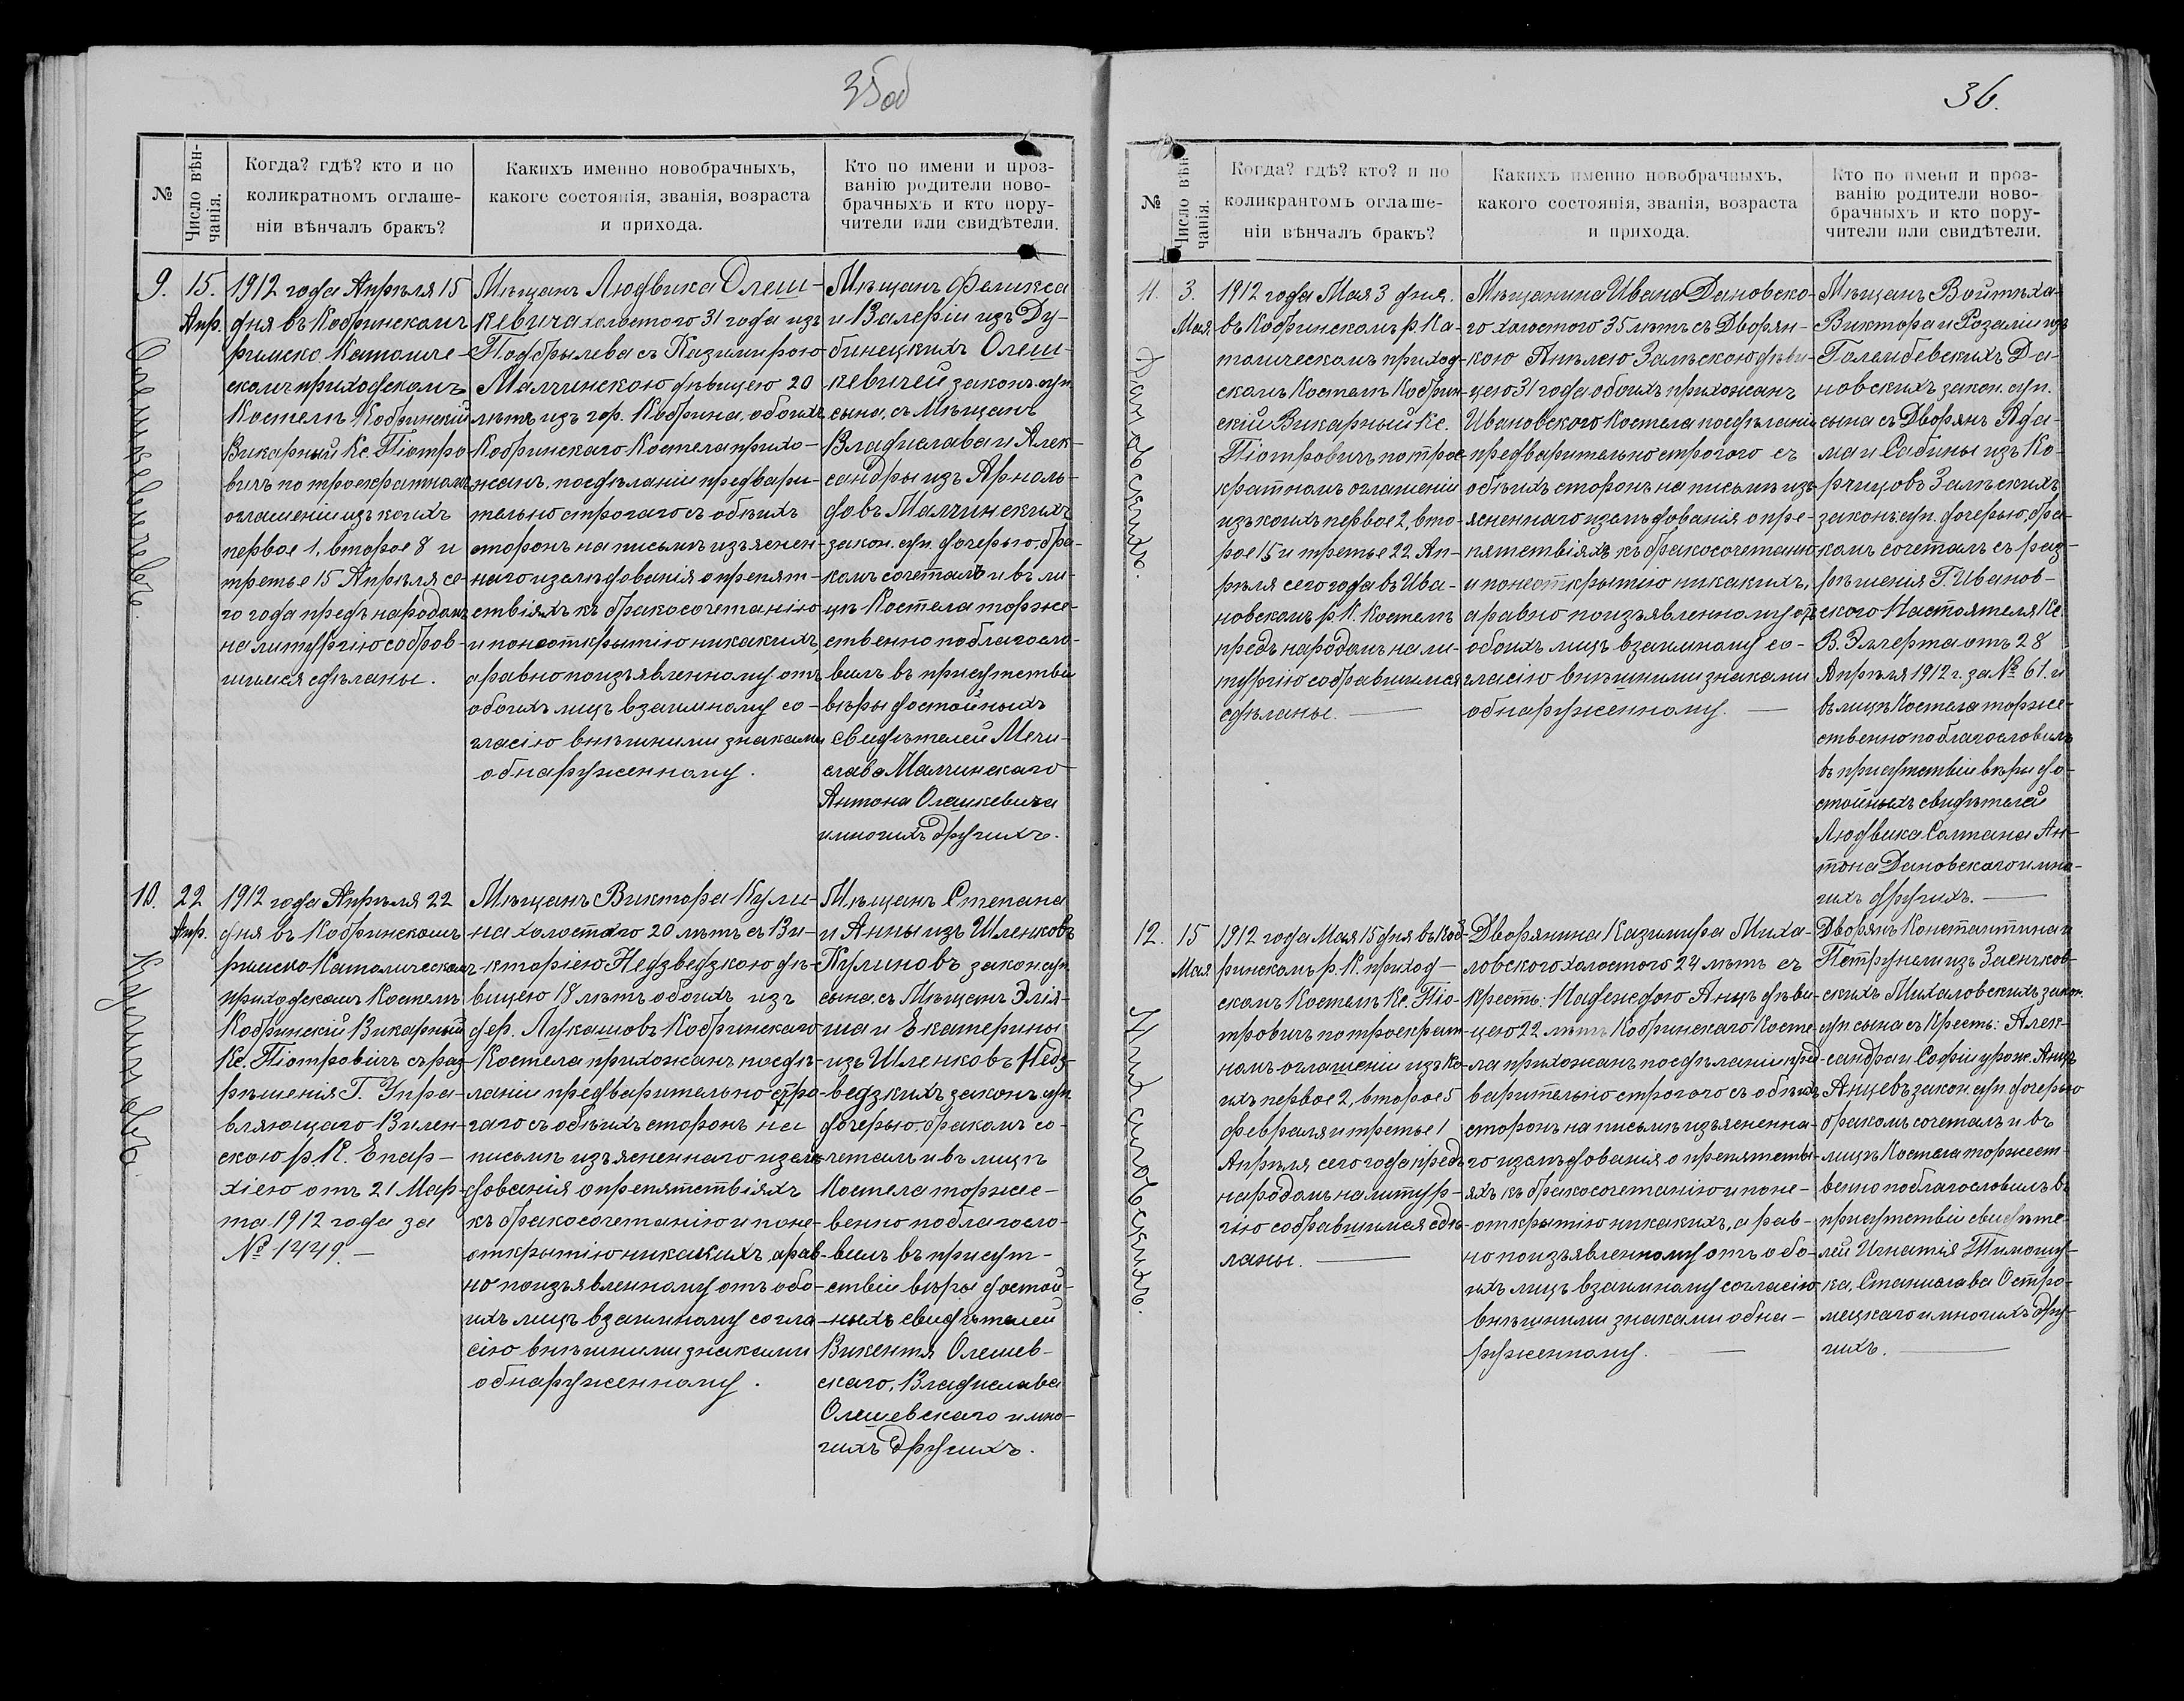 35об
№
Число вѣн-
чанія.
Когда? гдѣ? кто и по
коликратномъ оглаше-
ніи вѣнчалъ бракъ?
Какихъ именно новобрачныхъ,
какого состоянія, званія, возраста
и прихода.
Кто по имени и проз-
ванію родители ново-
брачныхъ и кто пору-
чители или свидѣтели.
9.
Олешкевичевъ.
15.
Апр.
1912 года Апрѣля 15
дня въ Кобринскомъ
римско Католиче-
скомъ приходскомъ
Костелѣ Кобринскій
Викарный Кс. Піотро
вичъ по троекратномъ
оглашеніи изъ коихъ
первое 1, второе 8 и
третье 15 Апрѣля се-
го года предъ народомъ
на литургію собрав-
шимся сдѣланы.
Мѣщанъ Людвика Олеш-
кевича холостого 31 года изъ
Подбрылева съ Казимирою
Малчинскою дѣвицею 20
лѣтъ изъ гор. Кобрина, обоихъ
Кобринскаго Костела прихо-
жанъ, посдѣланіи предвари-
тельно строгаго съ обѣихъ
сторонъ на письмѣ изъяснен-
наго изслѣдованія о препят-
ствіяхъ къ бракосочетанію
и понеоткрытію никакихъ,
а равно поизъявленному отъ
обоихъ лицъ взаимному со-
гласію внѣшними знаками
обнаруженному.
Мѣщанъ Феликса
и Валеріи изъ Ду-
бинецкихъ Олеш-
кевичей законъ. суп.
сына, съ Мѣщанъ
Владислава и Алек-
сандры изъ Арноль-
довъ Малчинскихъ
закон. суп. дочерью, бра-
комъ сочеталъ и въ ли-
цѣ Костела торже-
ственно поблагосло-
вилъ въ присутствіи
вѣры достойныхъ
Свидѣтелей Мечи-
слава Малчинскаго
Антона Олешкевича
и многихъ другихъ.
10.
Кулиновъ.
22
Апр.
1912 года Апрѣля 22
дня въ Кобринскомъ
римско Католическомъ
приходскомъ Костелѣ
Кобринскій Викарный
Кс. Піотровичъ съ раз-
рѣшенія Г. Упра-
вляющаго Вилен-
скою р. К. Епар-
хіею отъ 21 Мар-
та 1912 года за
№ 1449. –
Мѣщанъ Виктора Кули-
на холостаго 20 лѣтъ съ Ви-
кторіею Недзведзкою дѣ-
вицею 18 лѣтъ обоихъ изъ
дер. Лукашовъ Кобринскаго
Костела прихожанъ посдѣ-
ланіи предварительно стро-
гаго съ обѣихъ сторонъ на
письмѣ изъясненнаго изслѣ-
дованія о препятствіяхъ
къ бракосочетанію и поне-
открытію никакихъ, а рав-
но поизъявленному отъ обо-
ихъ лицъ взаимному согла-
сію внѣшними знаками
обнаруженному.
Мѣщанъ Степана
и Анны изъ Шленковъ
Кулиновъ закон. суп.
сына, съ Мѣщанъ Элія-
ша и Екатерины
изъ Шленковъ Недз-
ведзкихъ законъ. суп.
дочерью, бракомъ со-
четалъ и въ лицѣ
Костела торже-
венно поблагосло-
вилъ въ присут-
ствіи вѣры достой-
ныхъ свидѣтелей
Викентія Олешев-
скаго, Владислава
Олешевскаго и мно-
гихъ другихъ.
36.
№
Число вѣн
чанія.
Когда? гдѣ? кто? и по
коликрантомъ оглаше-
ніи вѣнчалъ бракъ?
Какихъ именно новобрачныхъ,
какого состоянія, званія, возраста
и прихода.
Кто по имени и проз-
ванію родители ново-
брачныхъ и кто пору-
чители или свидѣтели.
11.
Дановскихъ.
3.
Мая
1912 года Мая 3 дня.
въ Кобринскомъ р. Ка-
толическомъ приход-
скомъ Костелѣ Кобрин-
скій Викарный Кс.
Піотровичъ по трое-
кратномъ оглашеніи
изъ коихъ первое 2, вто-
рое 15 и третье 22 Ап-
рѣля сего года въ Ива-
новскомъ р. К. Костелѣ
предъ народомъ на ли-
тургію собравшимся
сдѣланы. –
Мѣщанина Ивана Дановско-
го холостого 35 лѣтъ съ Дворян-
кою Анѣлею Залѣскою дѣви-
цею 31 года обоихъ прихожанъ
Ивановского Костела посдѣланіи
предварительно строгого съ
обѣихъ сторонъ на письмѣ изъ-
ясненнаго изслѣдованія о пре-
пятствіяхъ къ бракосочетанію
и понеоткрытію никакихъ,
а равно поизъявленному отъ
обоихъ лицъ взаимному со-
гласію внѣшними знаками
обнаруженному. –
Мѣщанъ Войтѣха-
Виктора и Розаліи изъ
Голембевскихъ Да-
новскихъ закон. суп.
сына съ Дворянъ Ада-
ма и Сабины изъ Ко-
рчицовъ Залѣскихъ
законъ. суп. дочерью, бра-
комъ сочеталъ съ раз-
рѣшенія Г. Иванов-
ского Настоятеля Кс.
В. Эльерта отъ 28
Апрѣля 1912 г. за № 61. и
въ лицѣ Костела торже-
ственно поблагословилъ
въ присутствіи вѣры до-
стойныхъ свидѣтелей
Людвика Солтана Ан-
тона Дановскаго и мно-
гихъ другихъ. –
12.
Михаловскихъ.
15
Мая
1912 года Мая 15 дня въ Коб-
ринскомъ р. К. приход-
скомъ Костелѣ Кс. Піо-
тровичъ по троекрат-
номъ оглашеніи изъ ко-
ихъ первое 2, второе 5
февраля и третье 1
Апрѣля сего года предъ
народомъ на литур-
гію собравшимся сдѣ-
ланы. –
Дворянина Казимира Миха-
ловского холостого 24 лѣтъ съ
Крестъ: Надеждою Анцъ дѣви-
цею 22 лѣтъ Кобринскаго Косте-
ла прихожанъ посдѣланіи пред-
варительно строгого съ обѣихъ
сторонъ на письмѣ изъясненна-
го изслѣдованія о препятстві-
яхъ къ бракосочетанію и поне-
открытію никакихъ, а рав-
но поизъявленному отъ обо-
ихъ лицъ взаимному согласію
внѣшними знаками обна-
руженному. –
Дворянъ Константина и
Петрунели изъ Заенчков-
скихъ Михаловскихъ закон.
суп сына съ Крестъ: Алек-
сандра и Софіи урож. Анцъ
Анцевъ закон. суп. дочерью
бракомъ сочеталъ и въ
лицѣ Костела торжест-
венно поблагословилъ въ
присутствіи свидѣте-
лей Игнатія Тимошу-
ка, Станислава Остро-
мецкаго и многихъ дру-
гихъ. –